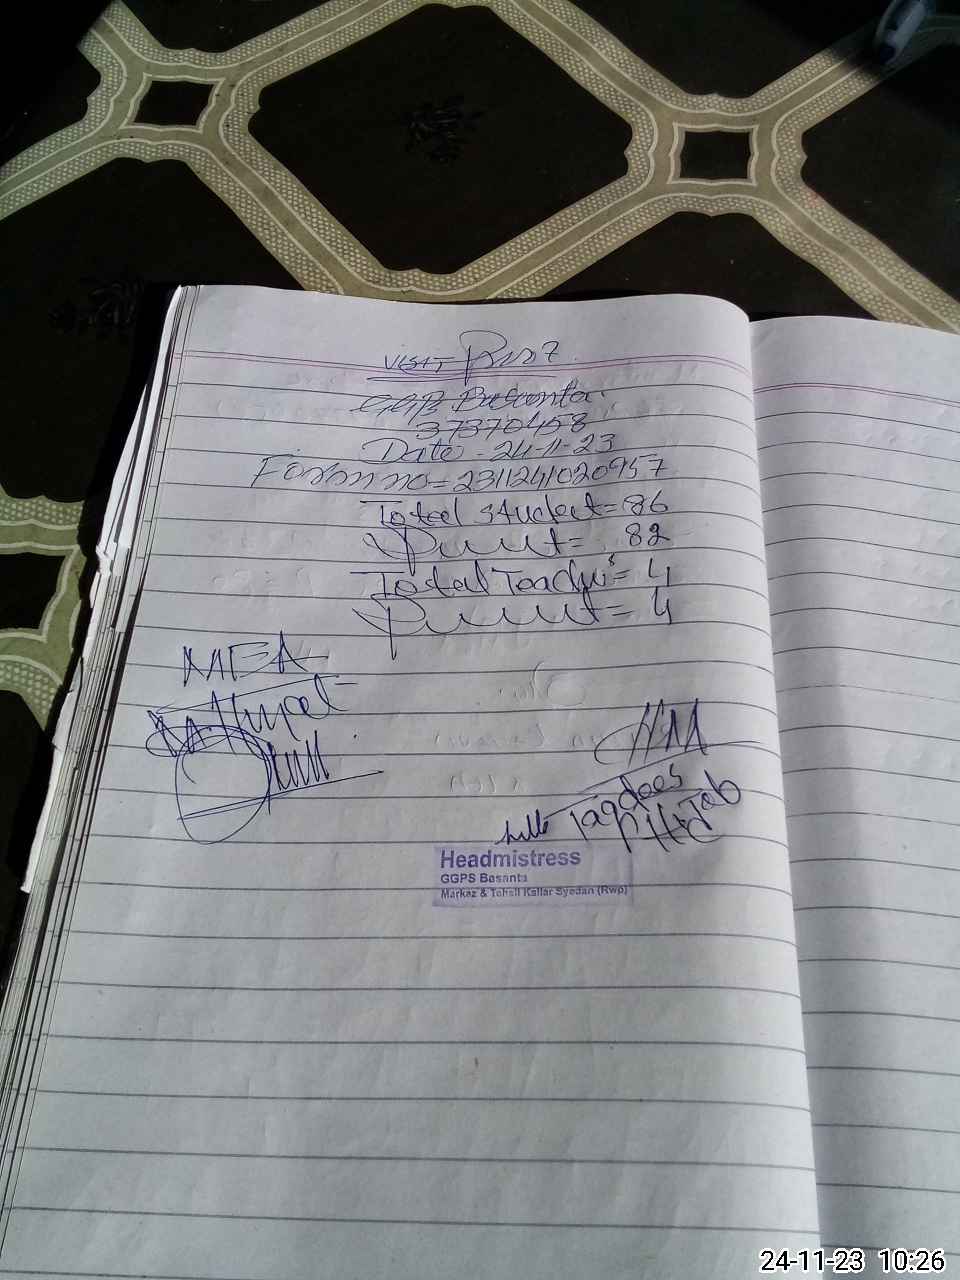 VISIT
Basanta
37370458
Date - 24-11-23
Form no = 2311241020957
Total student = 86
Present = 82
Total Teacher's = 4
Present = 4
MEA
HM
Taqdees
Headmistress
GGPS Basanta
Markaz & Tehsil Kallar Syedan (Rwp)
24-11-23 10:26